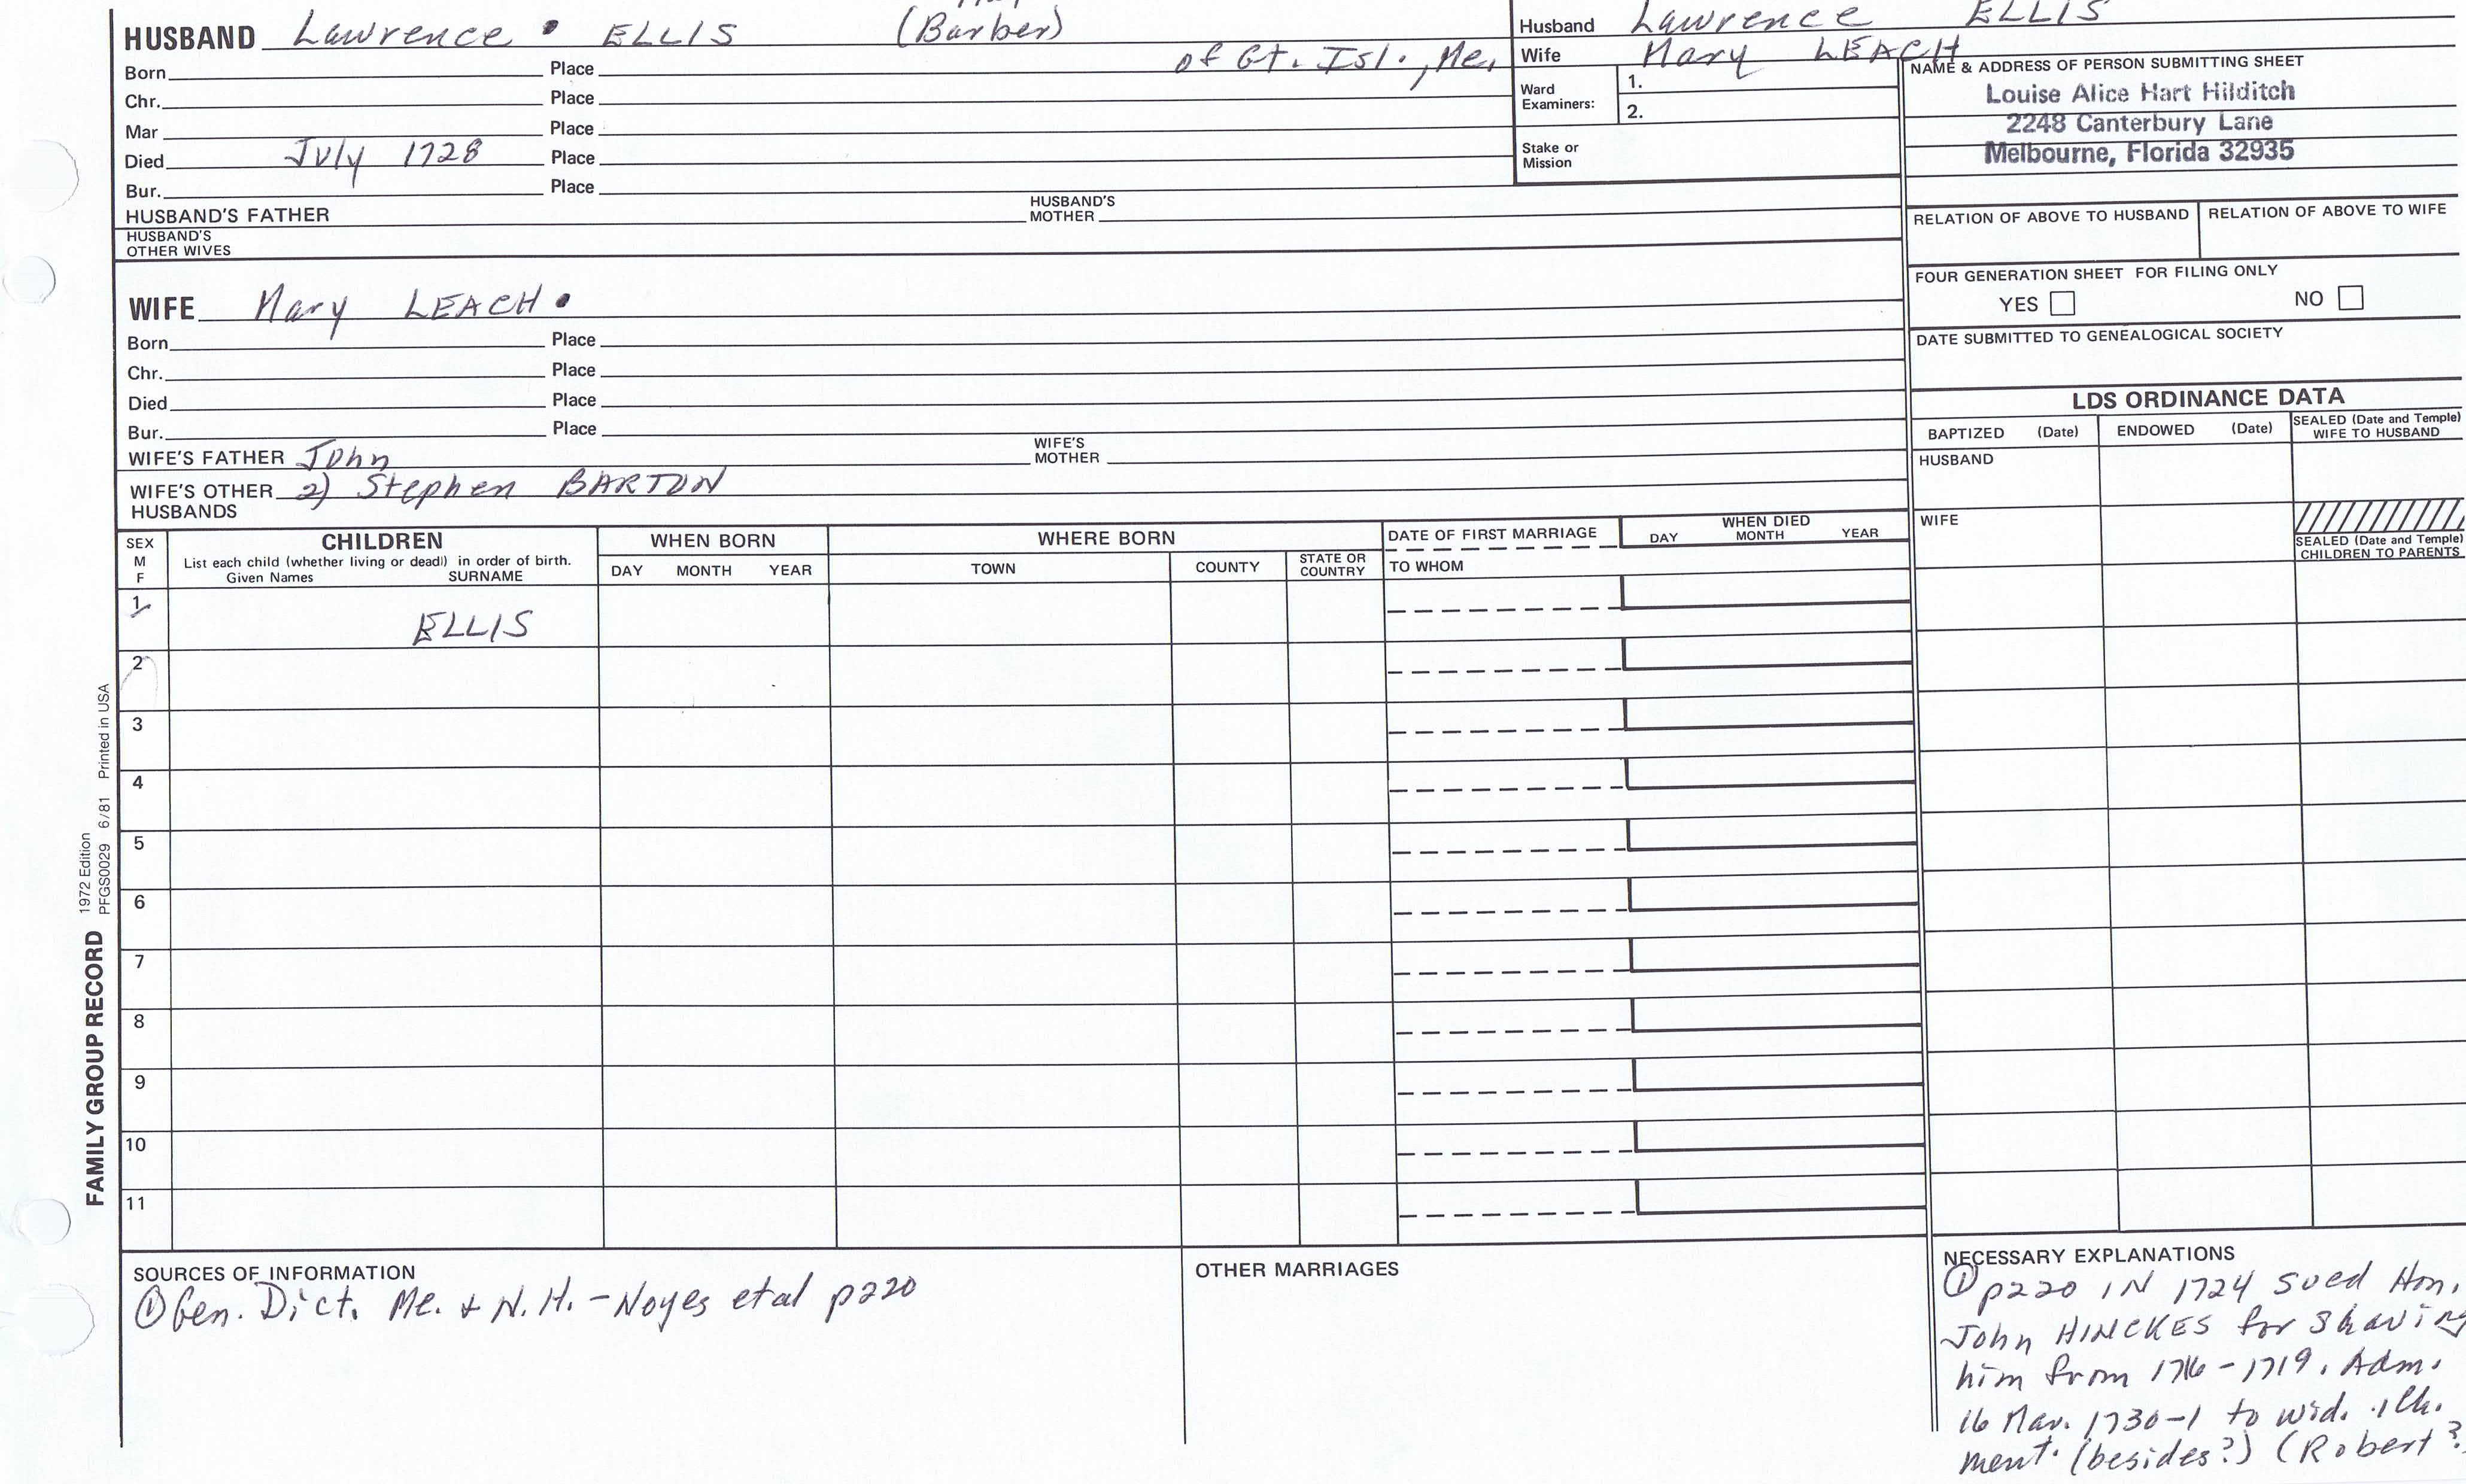 HUSBAND Lawrence • ELLIS (Barber)
of Gt. Isl., Me.
Born Place
Chr. Place
Mar Place
Died July 1728 Place
Bur. Place
HUSBAND'S FATHER HUSBAND'S MOTHER
HUSBAND'S
OTHER WIVES
Husband Lawrence ELLIS
Wife Mary LEACH
Ward
Examiners:
1.
2.
Stake or
Mission
NAME & ADDRESS OF PERSON SUBMITTING SHEET
Louise Alice Hart Hilditch
2248 Canterbury Lane
Melbourne, Florida 32935
RELATION OF ABOVE TO HUSBAND RELATION OF ABOVE TO WIFE
FOUR GENERATION SHEET FOR FILING ONLY
YES NO
DATE SUBMITTED TO GENEALOGICAL SOCIETY
WIFE Mary LEACH •
Born Place
Chr. Place
Died Place
Bur. Place
WIFE'S FATHER John WIFE'S MOTHER
WIFE'S OTHER 2) Stephen BARTON
HUSBANDS
LDS ORDINANCE DATA
BAPTIZED (Date) ENDOWED (Date) SEALED (Date and Temple)
WIFE TO HUSBAND
HUSBAND
WIFE
SEALED (Date and Temple)
CHILDREN TO PARENTS
SEX
M
F
CHILDREN
List each child (whether living or dead) in order of birth.
Given Names SURNAME
WHEN BORN
DAY MONTH YEAR
WHERE BORN
TOWN COUNTY STATE OR
COUNTRY
DATE OF FIRST MARRIAGE
TO WHOM
WHEN DIED
DAY MONTH YEAR
1 ELLIS
2
3
4
5
6
7
8
9
10
11
FAMILY GROUP RECORD 1972 Edition
PFGS0029 6/81 Printed in USA
SOURCES OF INFORMATION
① Gen. Dict. Me. + N.H. - Noyes etal p220
OTHER MARRIAGES
NECESSARY EXPLANATIONS
① p220 IN 1724 sued Hon.
John HINCKES for shaving
him from 1716-1719. Adm.
16 Mar. 1730-1 to wid. .1 Ch.
ment. (besides?) (Robert ?